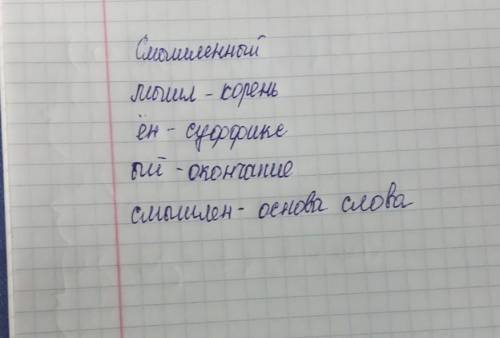 Смышленный
мышл - корень
ён - суффикс
ый - окончание
смышлен - основа слова